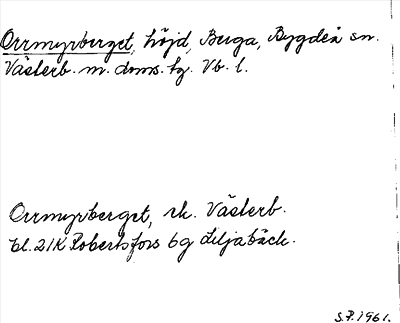 Orrmyrberget, höjd, Berga, Bygdeå sn.
Västerb. m. doms. hg. Vb. l.
Orrmyrberget, rk. Västerb.
bl. 21K Robertsfors 6g Liljabäck.
S.P. 1961.